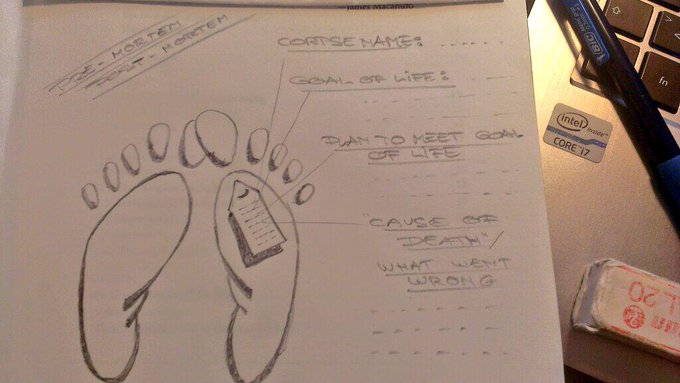 James Macanufo
PRE-MORTEM
POST-MORTEM
CORPSE NAME:
GOAL OF LIFE:
PLAN TO MEET GOAL
OF LIFE
"CAUSE OF
DEATH"/
WHAT WENT
WRONG
BIC
intel inside
CORE i7
fn
L20